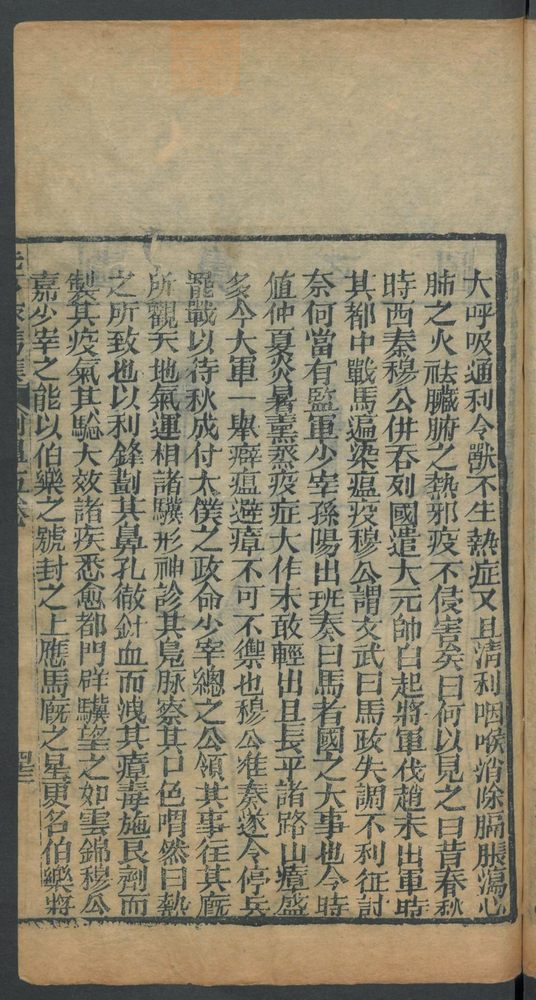 大呼吸通利令獸不生熱症又且清利咽喉消除膈脹瀉心
肺之火祛臟腑之熱邪疫不侵害矣曰何以見之曰昔春秋
時西秦穆公併吞列國遣大元帥白起將軍伐趙未出軍時
其都中戰馬遍染瘟疫穆公謂文武曰馬政失調不利征討
奈何當有監軍少宰孫陽出班奏曰馬者國之大事也今時
值仲夏炎暑薰蒸疫症大作未敢輕出且長平諸路山瘴盛
多今大軍一舉癖瘟避瘴不可不禦也穆公准奏遂令停兵
罷戰以待秋成付太僕之政命少宰總之公領其事往其廐
所觀天地氣運相諸驥形神診其鳧脉察其口色喟然曰熱
之所致也以利鋒劃其鼻孔徹針血而洩其瘴毒施良劑而
製其疫氣其驗大效諸疾悉愈都門群驥望之如雲錦穆公
嘉少宰之能以伯樂之號封之上應馬廐之星更名伯樂將